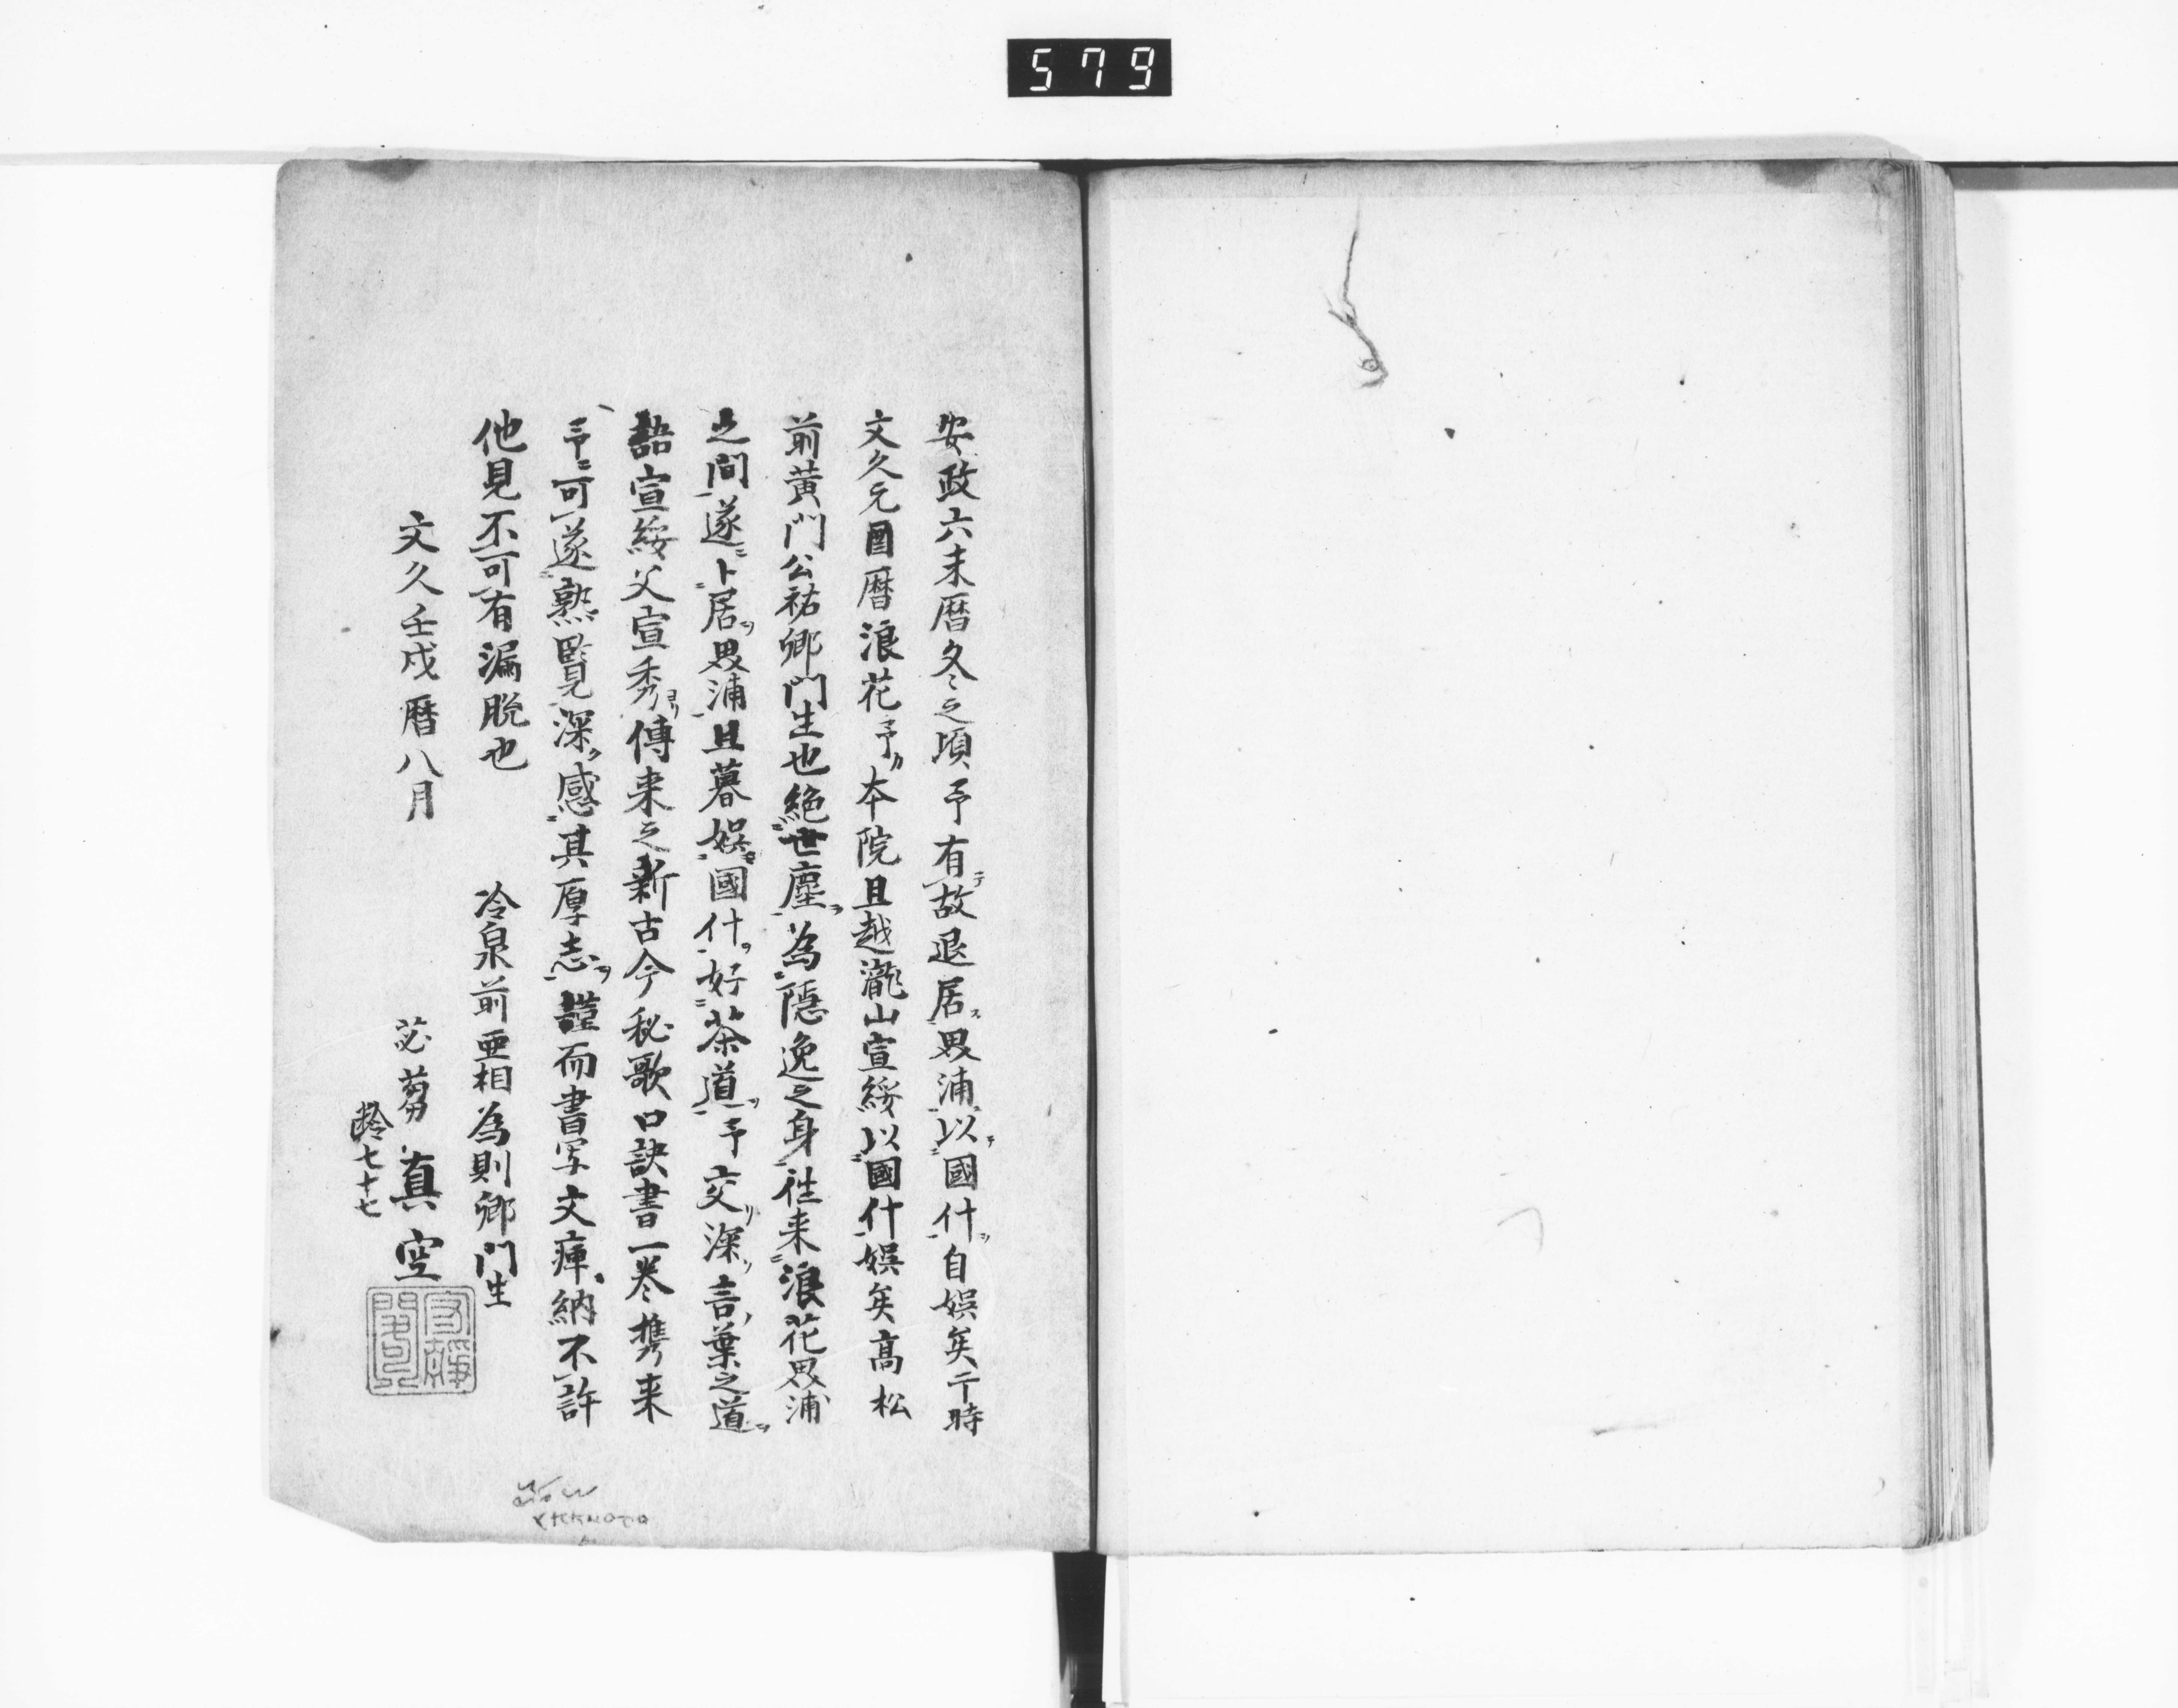 579
安政六未暦冬之頃予有テ故退居ス畏浦以テ國什ヲ自娯矣于時
文久元酉暦浪花予カ本院且越瀧山宣綏以國什娯矣高松
前黄門公祐卿門生也絶世塵ヲ為隠逸之身往来浪花畏浦
之間遂卜居ヲ畏浦且暮娯國什ヲ好茶道ヲ予交リ深ク言葉之道ヲ
語宣綏父宣秀ヨリ傳来之新古今秘歌口訣書一巻携来
予ニ可遂熟覧深ク感其厚志ヲ謹而書写文庫納不許
他見不可有漏脱也
冷泉前亜相為則卿門生
文久壬戌暦八月
苾蒭真空
齢七十七